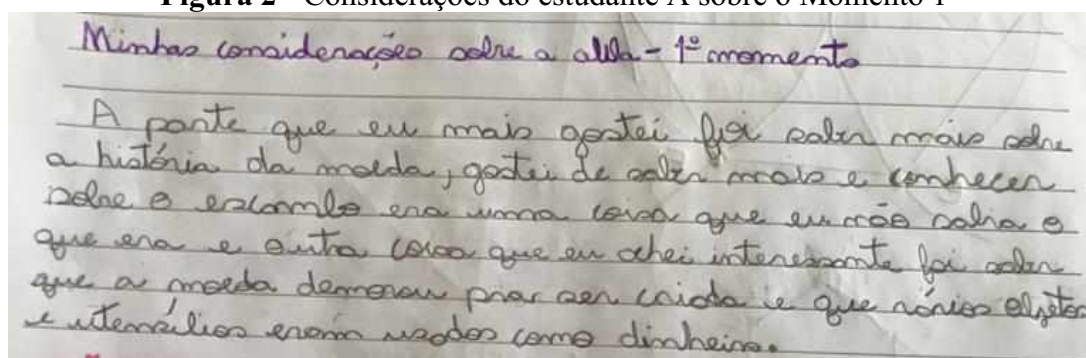 Figura 2 - Considerações do estudante A sobre o Momento 1
Minhas considerações sobre a aula - 1º momento
A parte que eu mais gostei foi saber mais sobre
a história da moeda, gostei de saber mais e conhecer
sobre o escambo era uma coisa que eu não sabia o
que era e outra coisa que eu achei interessante foi saber
que a moeda demorou prar ser criada e que vários objetos
e utensílios eram usados como dinheiro.